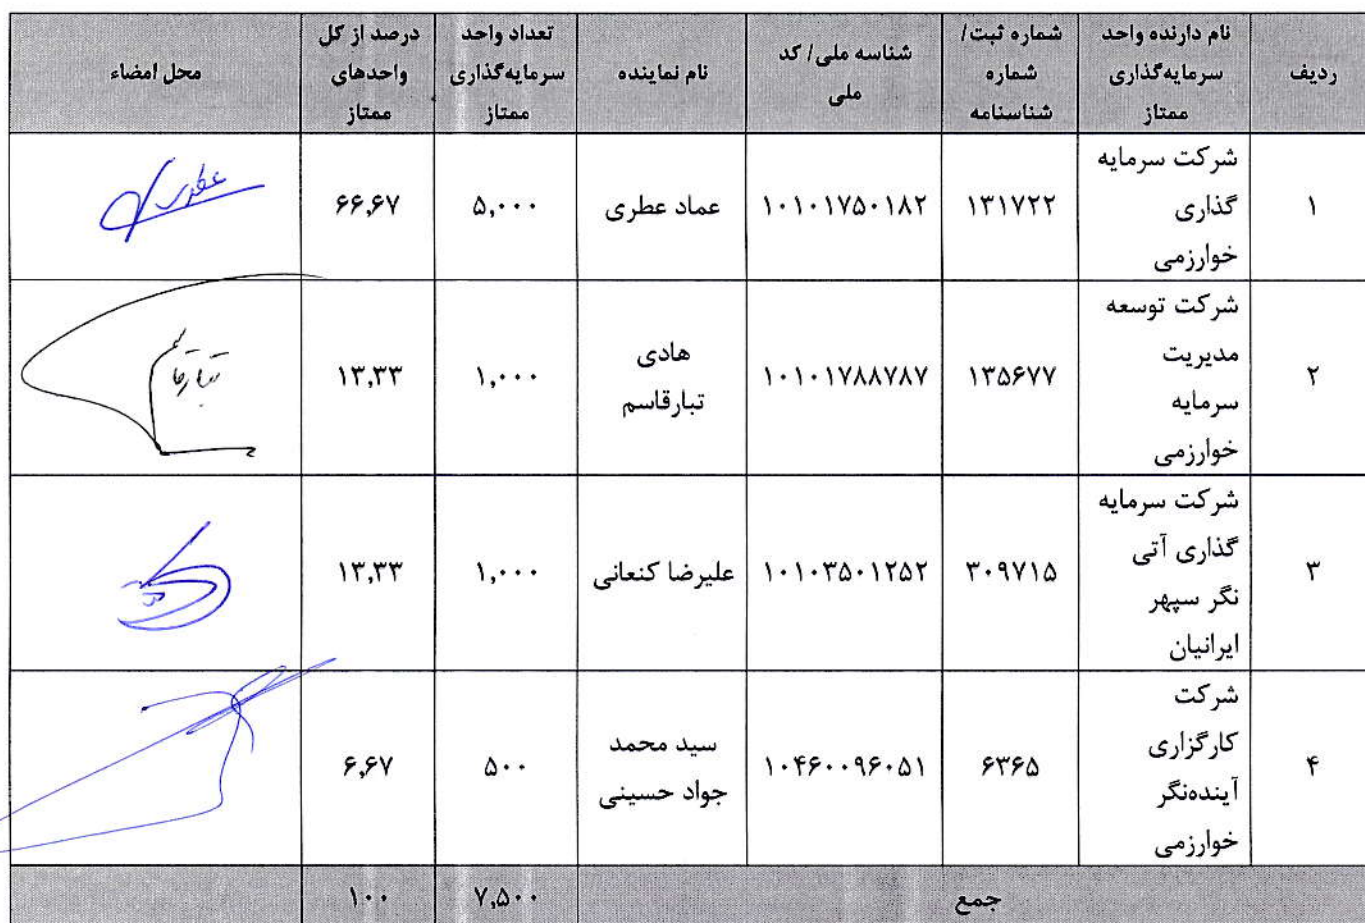 ردیف
نام دارنده واحد
سرمایه‌گذاری
ممتاز
شماره ثبت/
شماره
شناسنامه
شناسه ملی/ کد
ملی
نام نماینده
تعداد واحد
سرمایه‌گذاری
ممتاز
درصد از کل
واحدهای
ممتاز
محل امضاء
۱
شرکت سرمایه
گذاری
خوارزمی
۱۳۱۷۲۲
۱۰۱۰۱۷۵۰۱۸۲
عماد عطری
۵,۰۰۰
۶۶,۶۷
عطری
۲
شرکت توسعه
مدیریت
سرمایه
خوارزمی
۱۳۵۶۷۷
۱۰۱۰۱۷۸۸۷۸۷
هادی
تبارقاسم
۱,۰۰۰
۱۳,۳۳
تبارقاسم
۳
شرکت سرمایه
گذاری آتی
نگر سپهر
ایرانیان
۳۰۹۷۱۵
۱۰۱۰۳۵۰۱۲۵۲
علیرضا کنعانی
۱,۰۰۰
۱۳,۳۳
۴
شرکت
کارگزاری
آینده‌نگر
خوارزمی
۶۳۶۵
۱۰۴۶۰۰۹۶۰۵۱
سید محمد
جواد حسینی
۵۰۰
۶,۶۷
جمع
۷,۵۰۰
۱۰۰